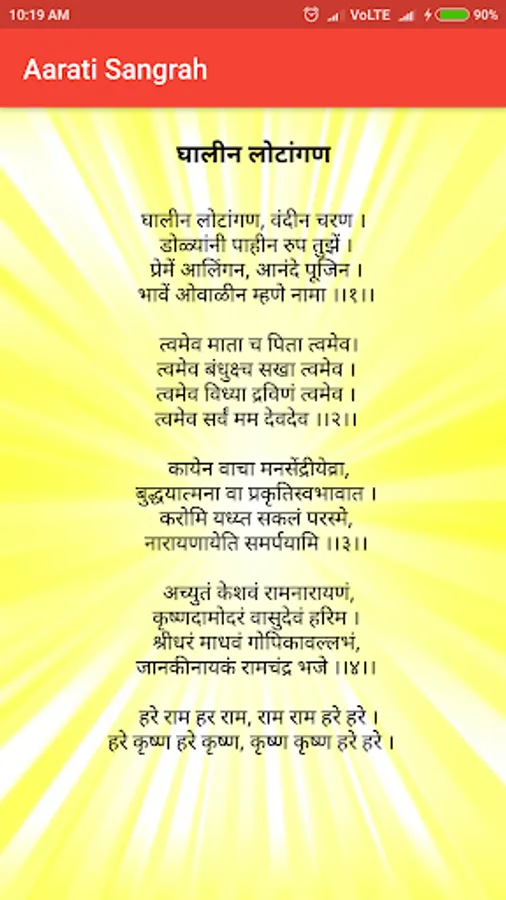 10:19 AM VoLTE 90%
Aarati Sangrah
घालीन लोटांगण
घालीन लोटांगण, वंदीन चरण ।
डोळ्यांनी पाहीन रुप तुझें ।
प्रेमें आलिंगन, आनंदे पूजिन ।
भावें ओवाळीन म्हणे नामा ।।१।।
त्वमेव माता च पिता त्वमेव।
त्वमेव बंधुक्ष्च सखा त्वमेव ।
त्वमेव विध्या द्रविणं त्वमेव ।
त्वमेव सर्वं मम देवदेव ।।२।।
कायेन वाचा मनसेंद्रीयेव्रा,
बुद्धयात्मना वा प्रकृतिस्वभावात ।
करोमि यध्य्त सकलं परस्मे,
नारायणायेति समर्पयामि ।।३।।
अच्युतं केशवं रामनारायणं,
कृष्णदामोदरं वासुदेवं हरिम ।
श्रीधरं माधवं गोपिकावल्लभं,
जानकीनायकं रामचंद्र भजे ।।४।।
हरे राम हर राम, राम राम हरे हरे ।
हरे कृष्ण हरे कृष्ण, कृष्ण कृष्ण हरे हरे ।